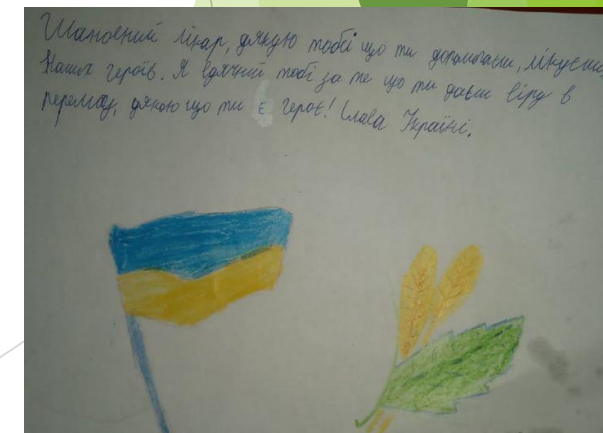 Шановний лікар, дякую тобі що ти допомагаєш, лікуєш
Наших героїв. Я вдячний тобі за те що ти даєш віру в
перемогу, дякою що ти є герої! Слава Україні.